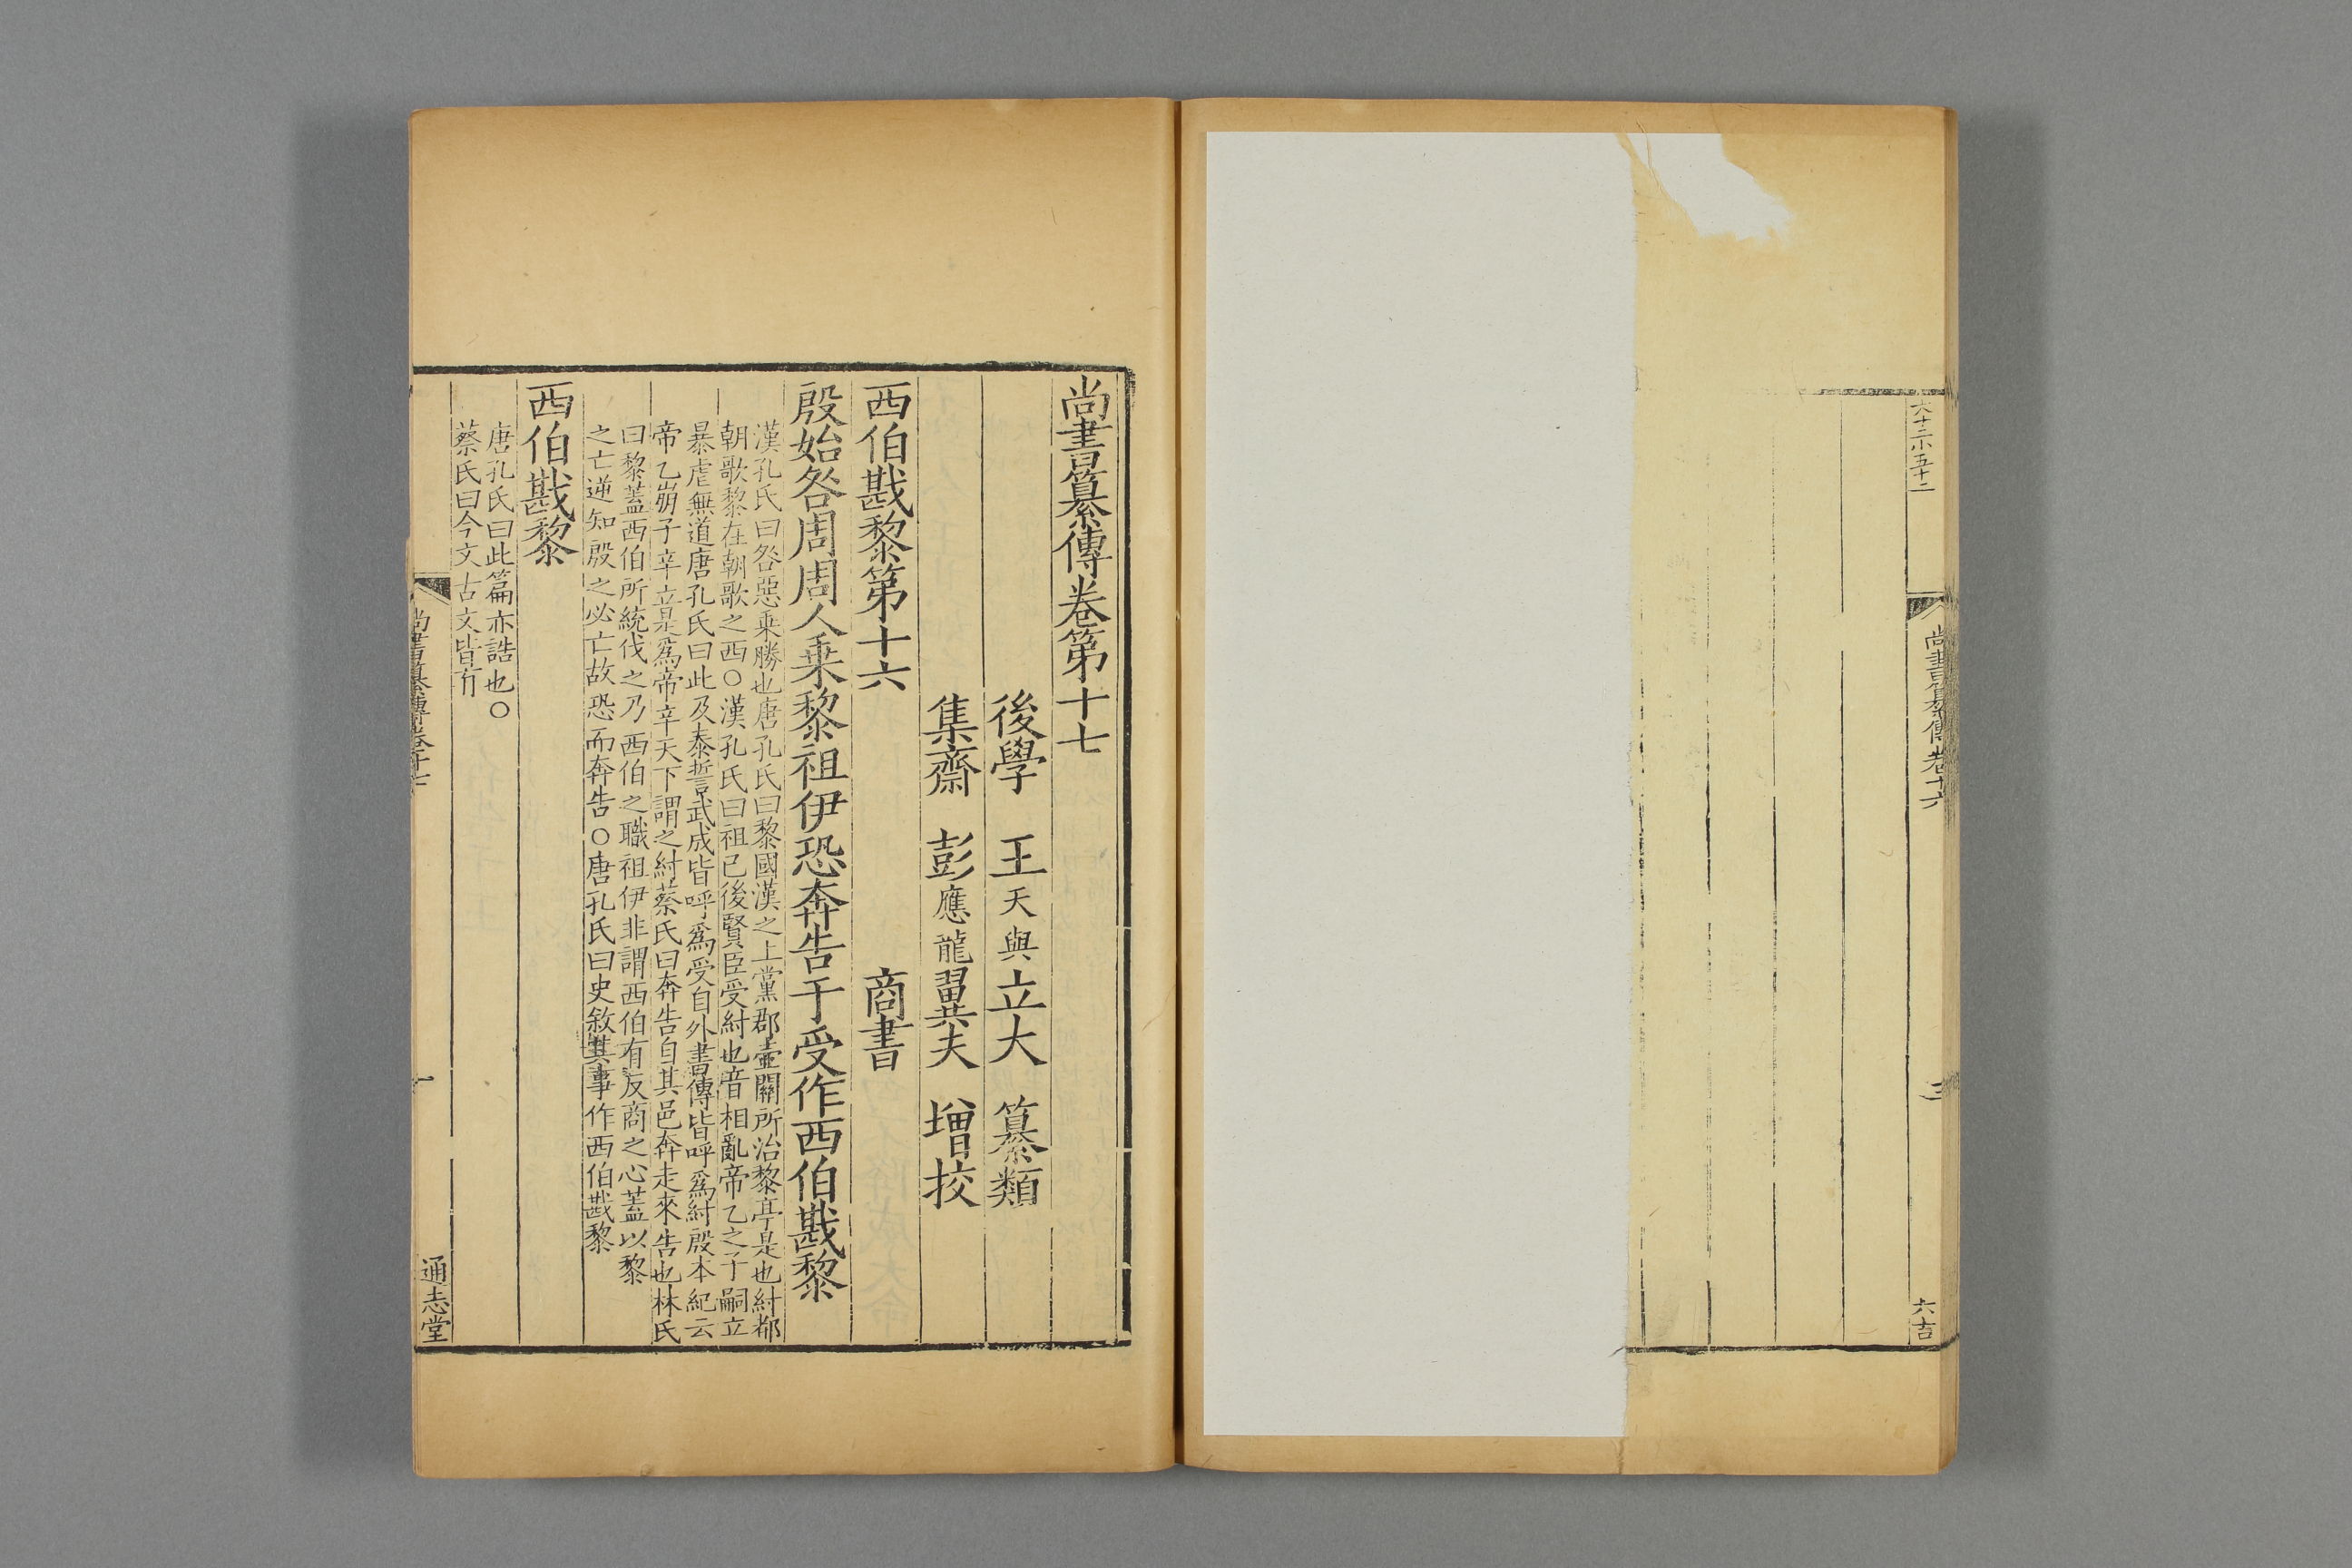 六十二小五十二
尚書纂傳卷十六
三
六吉
尚書纂傳卷第十七
後學　王天與立大　纂類
集齋　彭應龍翼夫　增挍
西伯戡黎第十六　商書
殷始咎周周人乗黎祖伊恐奔告于受作西伯戡黎
漢孔氏曰咎惡乗勝也唐孔氏曰黎國漢之上黨郡壷關所治黎亭是也紂都
朝歌黎在朝歌之西○漢孔氏曰祖已後賢臣受紂也音相亂帝乙之子嗣立
暴虐無道唐孔氏曰此及泰誓武成皆呼爲受自外書傳皆呼爲紂殷本紀云
帝乙崩子辛立是爲帝辛天下謂之紂蔡氏曰奔告自其邑奔走來告也林氏
曰黎蓋西伯所統伐之乃西伯之職祖伊非謂西伯有反商之心蓋以黎
之亡逆知殷之必亡故恐而奔告○唐孔氏曰史敘其事作西伯戡黎
西伯戡黎
唐孔氏曰此篇亦誥也○
蔡氏曰今文古文皆有
尚書纂傳卷十七
一
通志堂